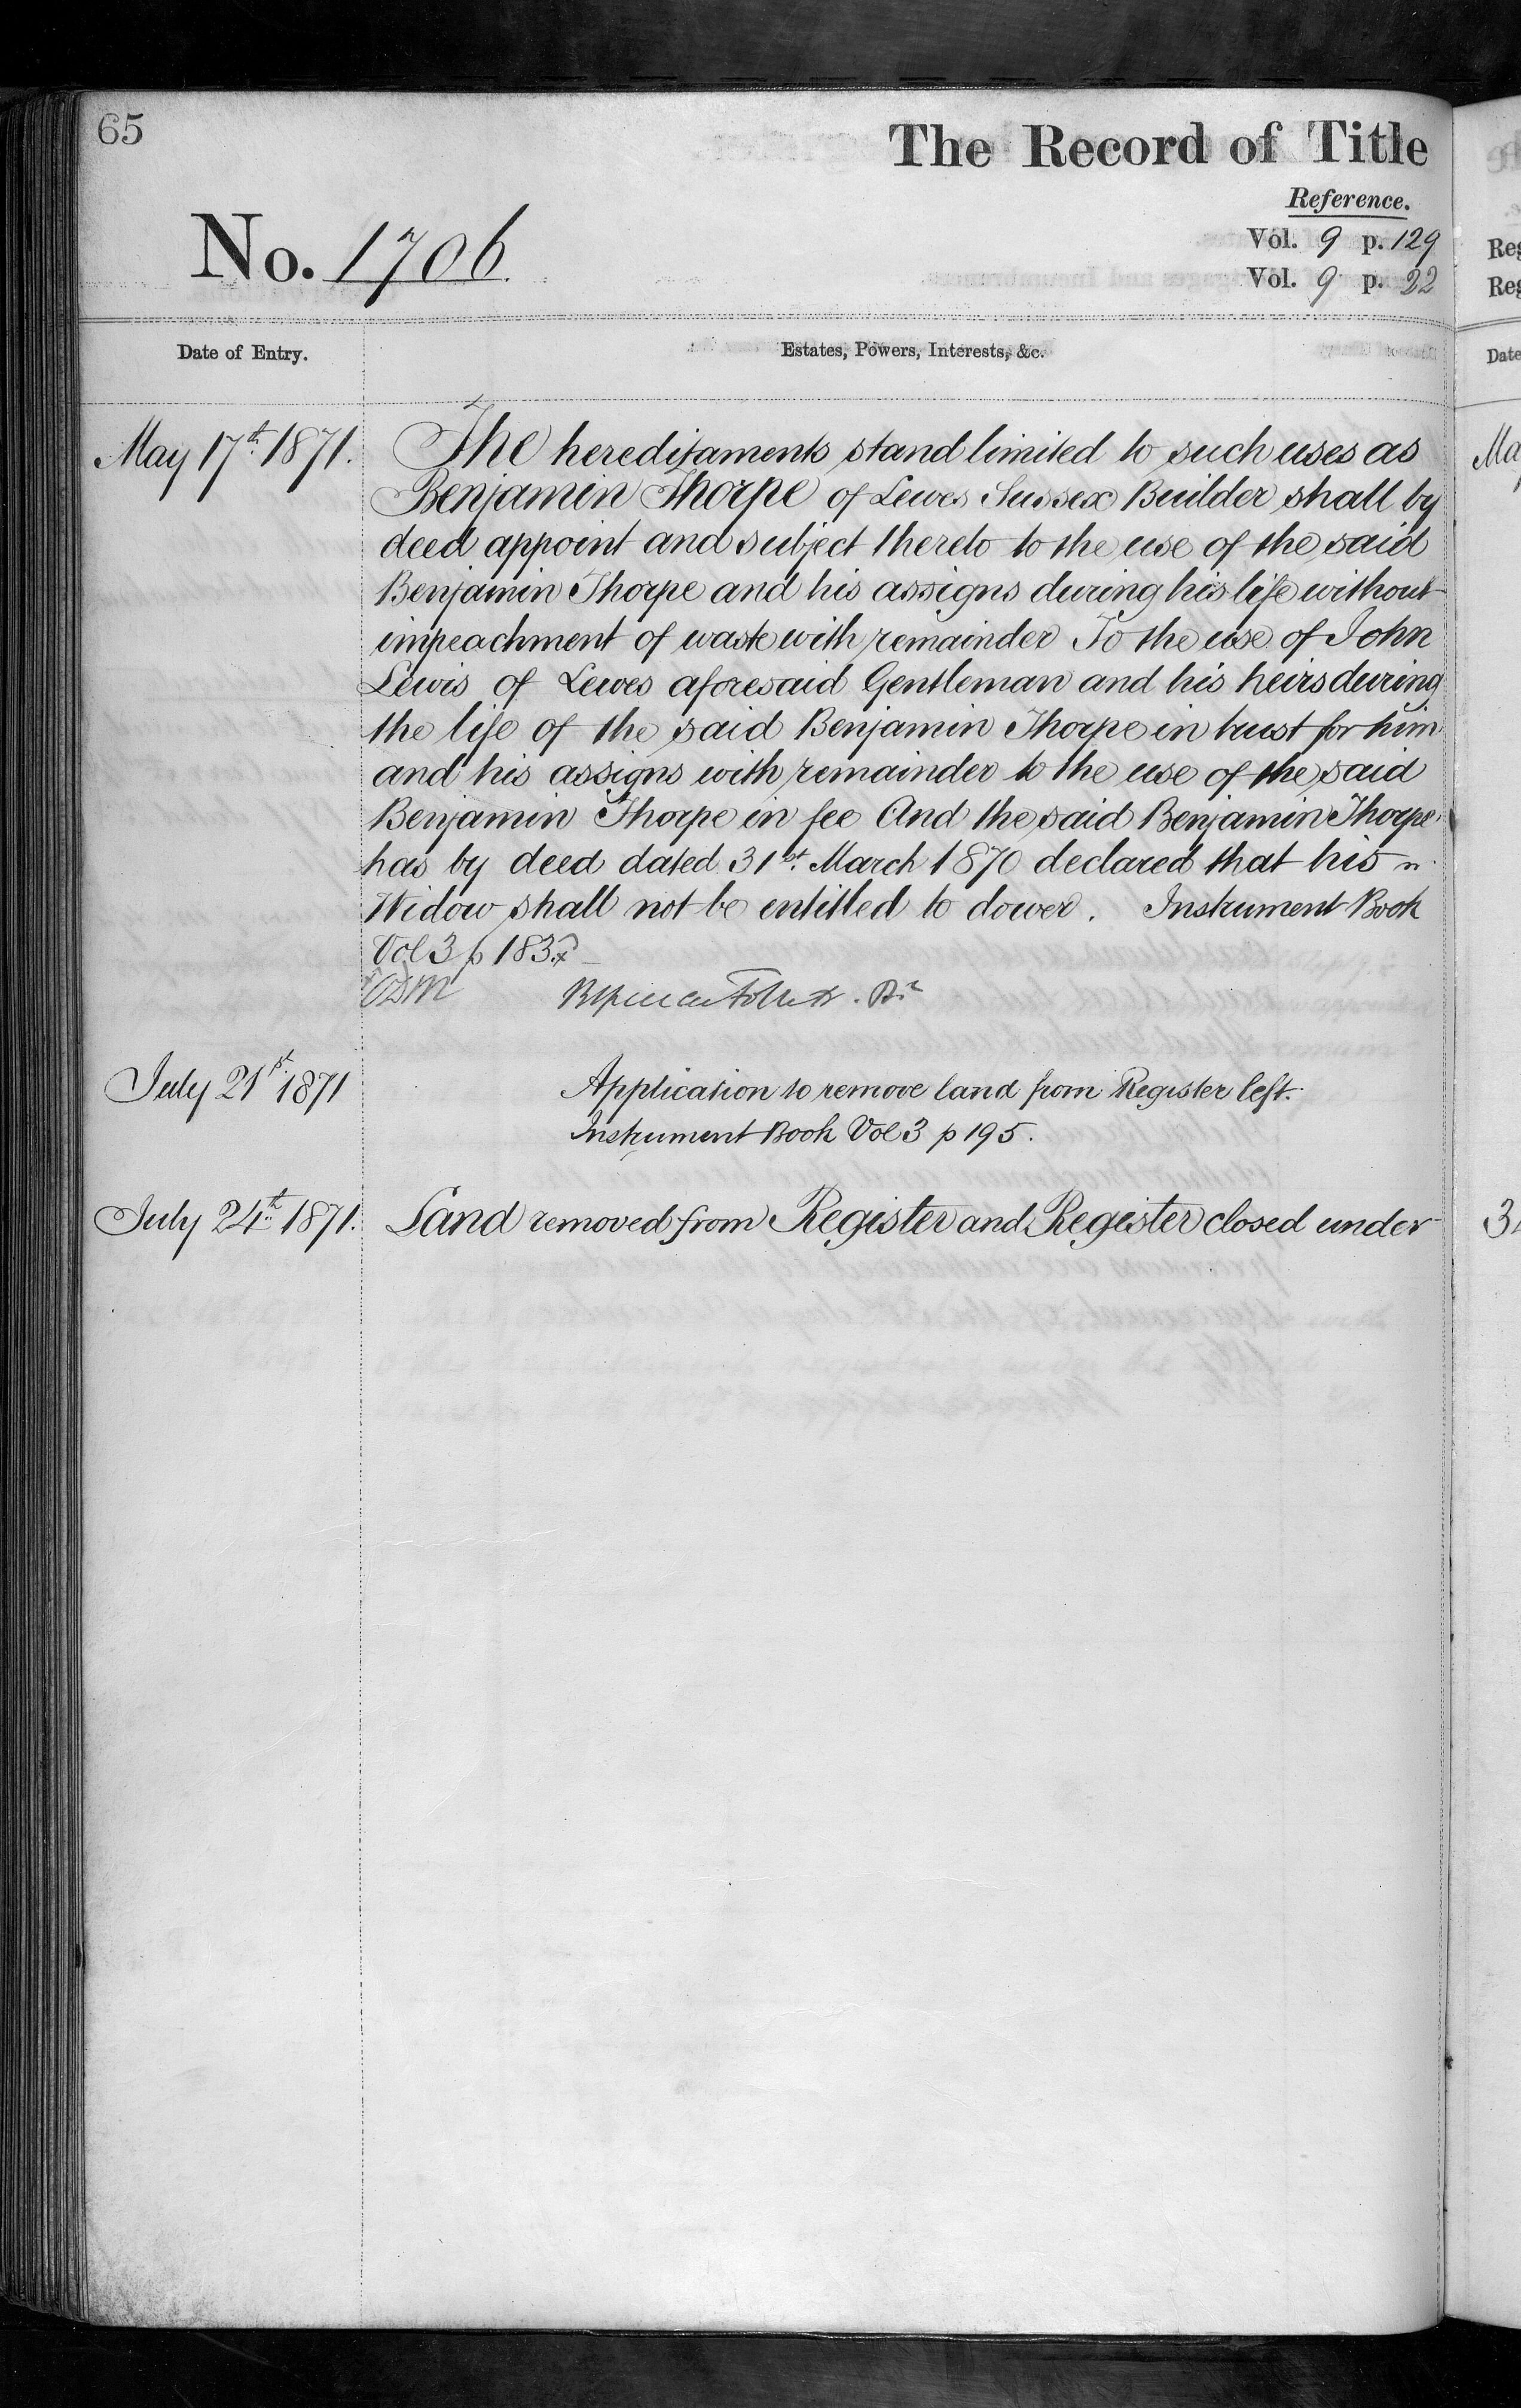 65
The Record of Title
Reference.
No. 1706.
Vol. 9 p. 129
Vol. 9 p. 22
Date of Entry.
Estates, Powers, Interests, &c.
May 17th 1871.
The hereditaments stand limited to such uses as
Benjamin Thorpe of Lewes Sussex Builder shall by
deed appoint and subject thereto to the use of the said
Benjamin Thorpe and his assigns during his life without
impeachment of waste with remainder To the use of John
Lewis of Lewes aforesaid Gentleman and his heirs during
the life of the said Benjamin Thorpe in trust for him
and his assigns with remainder to the use of the said
Benjamin Thorpe in fee And the said Benjamin Thorpe
has by deed dated 31st. March 1870 declared that his
Widow shall not be entitled to dower. Instrument Book
Vol 3 p 183
July 21st. 1871
Application to remove land from Register left.
Instrument Book Vol 3 p 195.
July 24th 1871.
Land removed from Register and Register closed under
Reg
Reg
Date
Ma